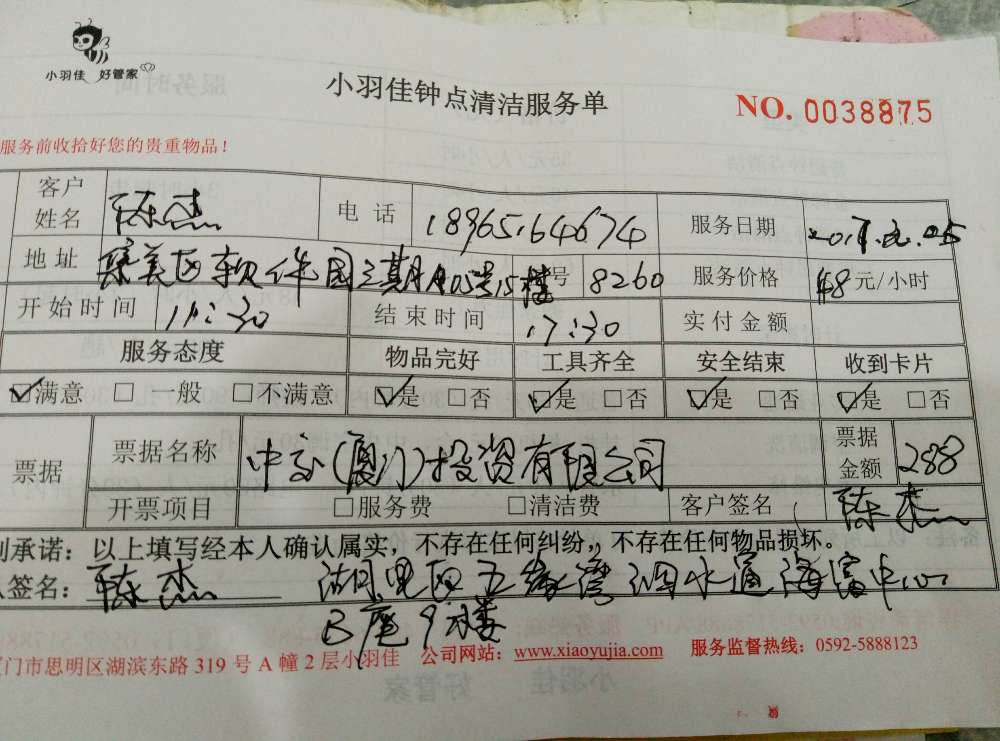 小羽佳 好管家
小羽佳钟点清洁服务单
NO. 0038875
服务前收拾好您的贵重物品！
客户姓名 陈杰 电话 18965164674 服务日期
地址 集美区软件园三期A05号15楼 号 8260 服务价格 48 元/小时
开始时间 11:30 结束时间 17:30 实付金额
服务态度 物品完好 工具齐全 安全结束 收到卡片
☑满意 □ 一般 □不满意 ☑是 □否 ☑是 □否 ☑是 □否 ☑是 □否
票据 票据名称 (厦门)投资有限公司 票据金额 288
开票项目 □服务费 □清洁费 客户签名 陈杰
承诺：以上填写经本人确认属实，不存在任何纠纷，不存在任何物品损坏。
签名： 陈杰 湖里区五缘湾泗水道海富中心
B座9楼
门市思明区湖滨东路 319 号 A 幢 2 层小羽佳 公司网站：www.xiaoyujia.com 服务监督热线：0592-5888123